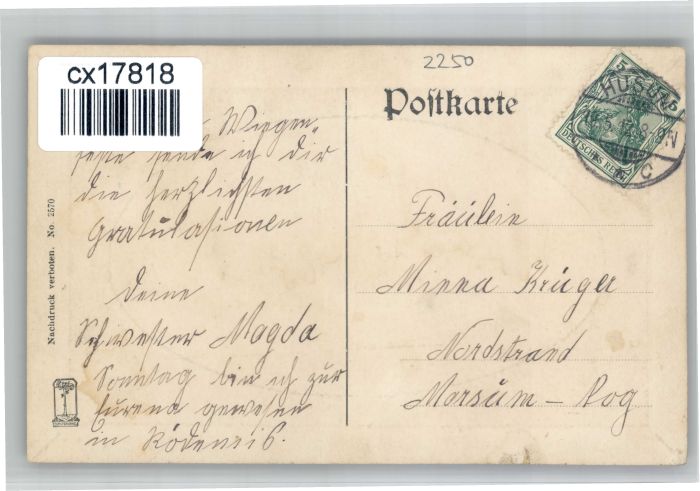 cx17818
2250
Postkarte
5
HUSUM
DEUTSCHES REICH
C
Wiegen-
feste sende ich dir
die herzlichsten
Gratulasionen
Deine
Schwester Magda
Sonntag bin ich zur
gewesen
in Rödemis.
Fräulein
Minna Krüger
Nordstrand
Morsum – Kog
Nachdruck verboten. No. 2570